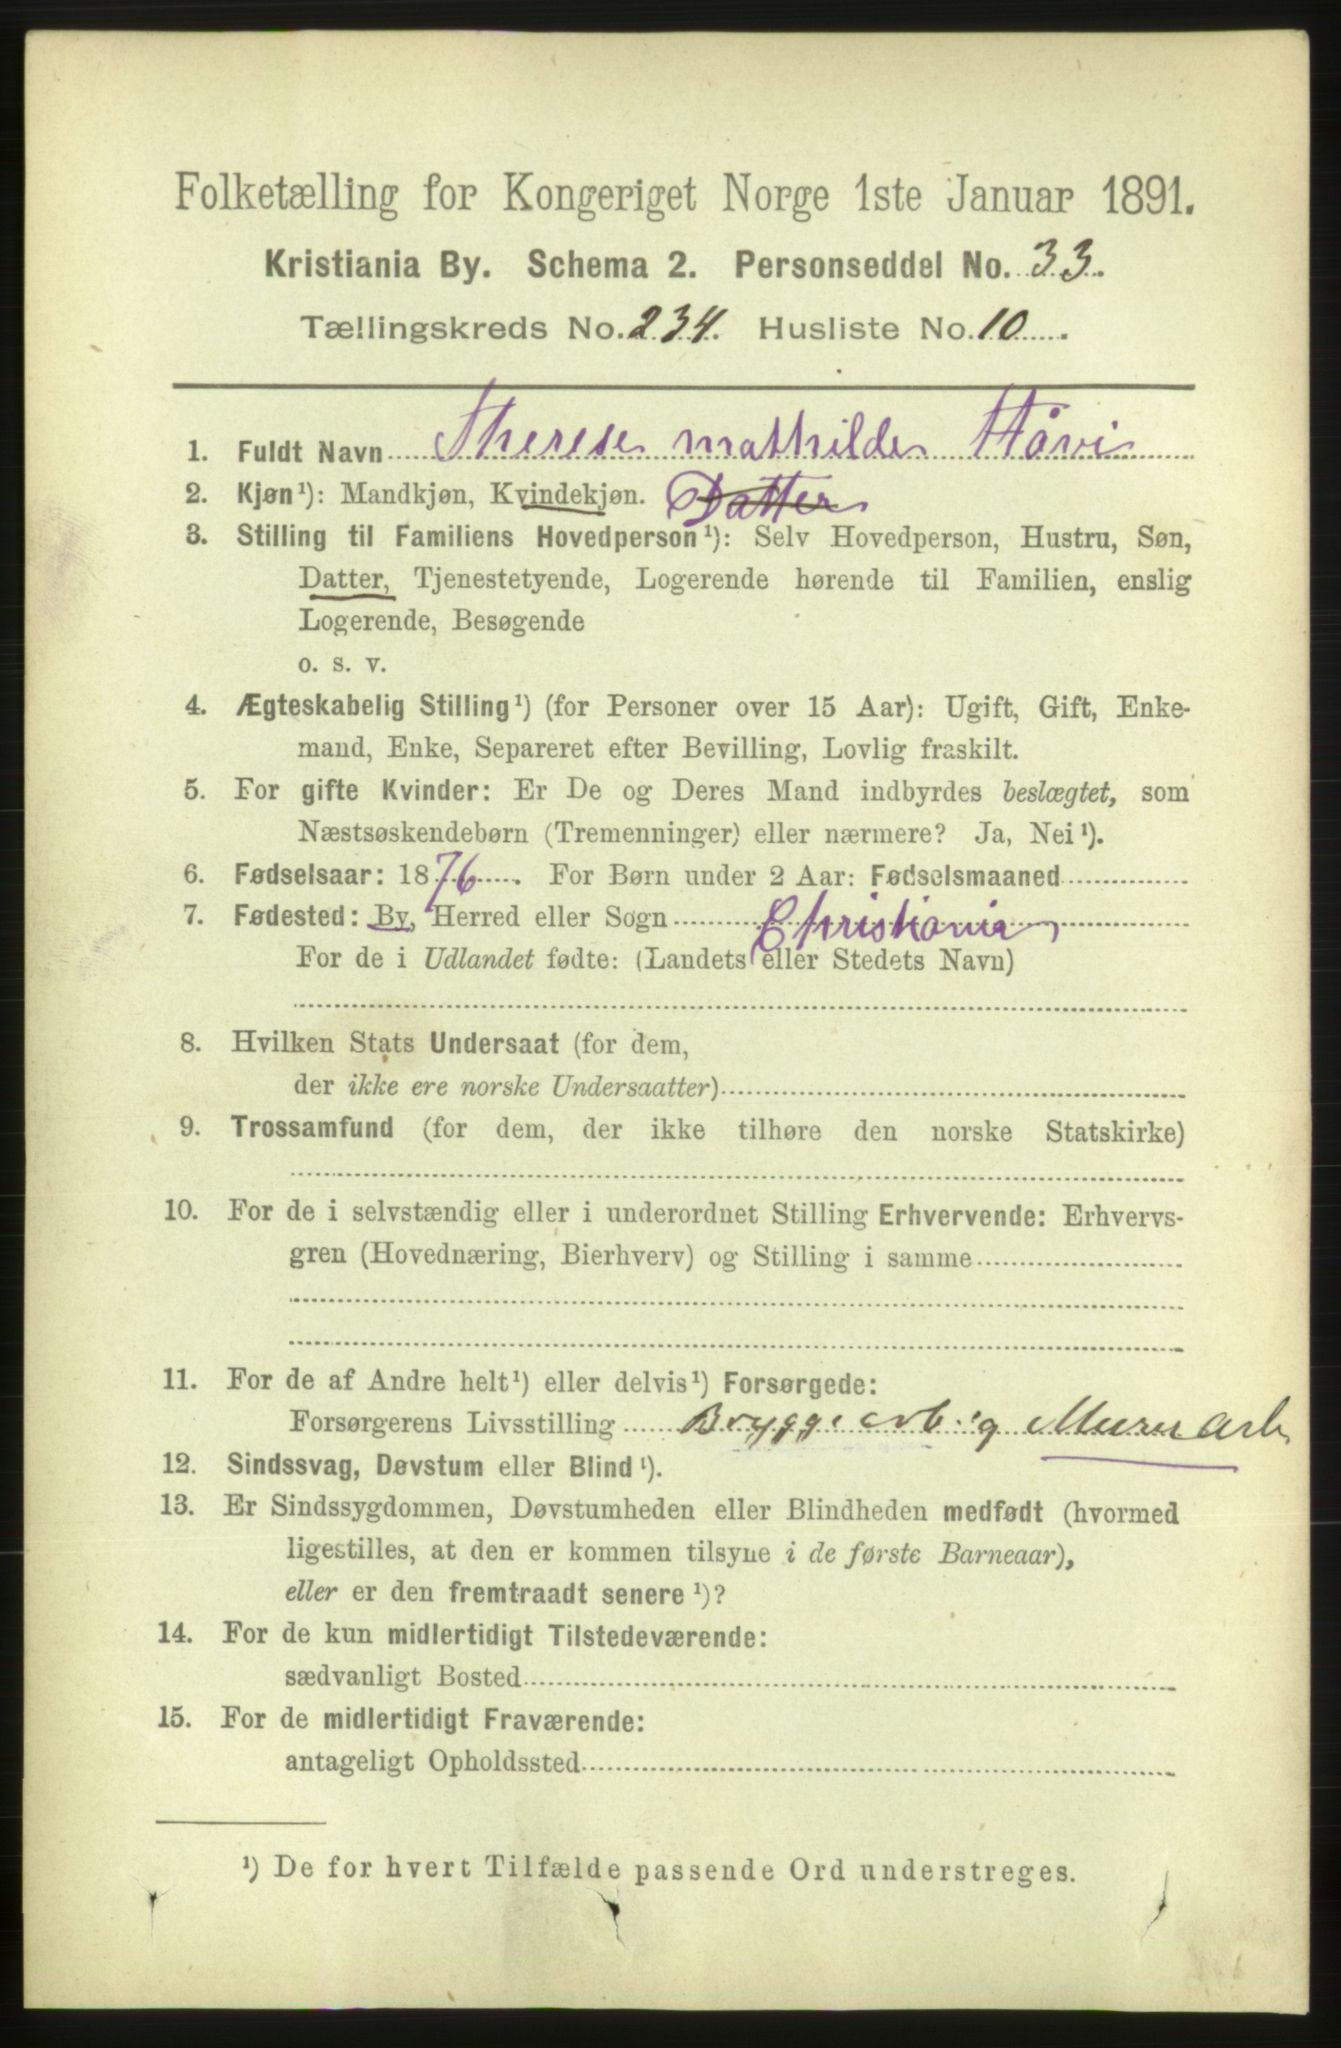 Folketælling for Kongeriget Norge 1ste Januar 1891.
Kristiania By. Schema 2. Personseddel No. 33.
Tællingskreds No. 234. Husliste No. 10
1. Fuldt Navn Therese mathilde Håvi
2. Kjøn¹): Mandkjøn, Kvindekjøn. Datter
3. Stilling til Familiens Hovedperson¹): Selv Hovedperson, Hustru, Søn,
Datter, Tjenestetyende, Logerende hørende til Familien, enslig
Logerende, Besøgende
o. s. v.
4. Ægteskabelig Stilling¹) (for Personer over 15 Aar): Ugift, Gift, Enke-
mand, Enke, Separeret efter Bevilling, Lovlig fraskilt.
5. For gifte Kvinder: Er De og Deres Mand indbyrdes beslægtet, som
Næstsøskendebørn (Tremenninger) eller nærmere? Ja, Nei¹).
6. Fødselsaar: 1876. For Børn under 2 Aar: Fødselsmaaned
7. Fødested: By, Herred eller Sogn Christiania
For de i Udlandet fødte: (Landets eller Stedets Navn)
8. Hvilken Stats Undersaat (for dem,
der ikke ere norske Undersaatter)
9. Trossamfund (for dem, der ikke tilhøre den norske Statskirke)
10. For de i selvstændig eller i underordnet Stilling Erhvervende: Erhvervs-
gren (Hovednæring, Bierhverv) og Stilling i samme
11. For de af Andre helt¹) eller delvis¹) Forsørgede:
Forsørgerens Livsstilling Bryggearb. og Murarb
12. Sindssvag, Døvstum eller Blind¹).
13. Er Sindssygdommen, Døvstumheden eller Blindheden medfødt (hvormed
ligestilles, at den er kommen tilsyne i de første Barneaar),
eller er den fremtraadt senere¹)?
14. For de kun midlertidigt Tilstedeværende:
sædvanligt Bosted
15. For de midlertidigt Fraværende:
antageligt Opholdssted
¹) De for hvert Tilfælde passende Ord understreges.